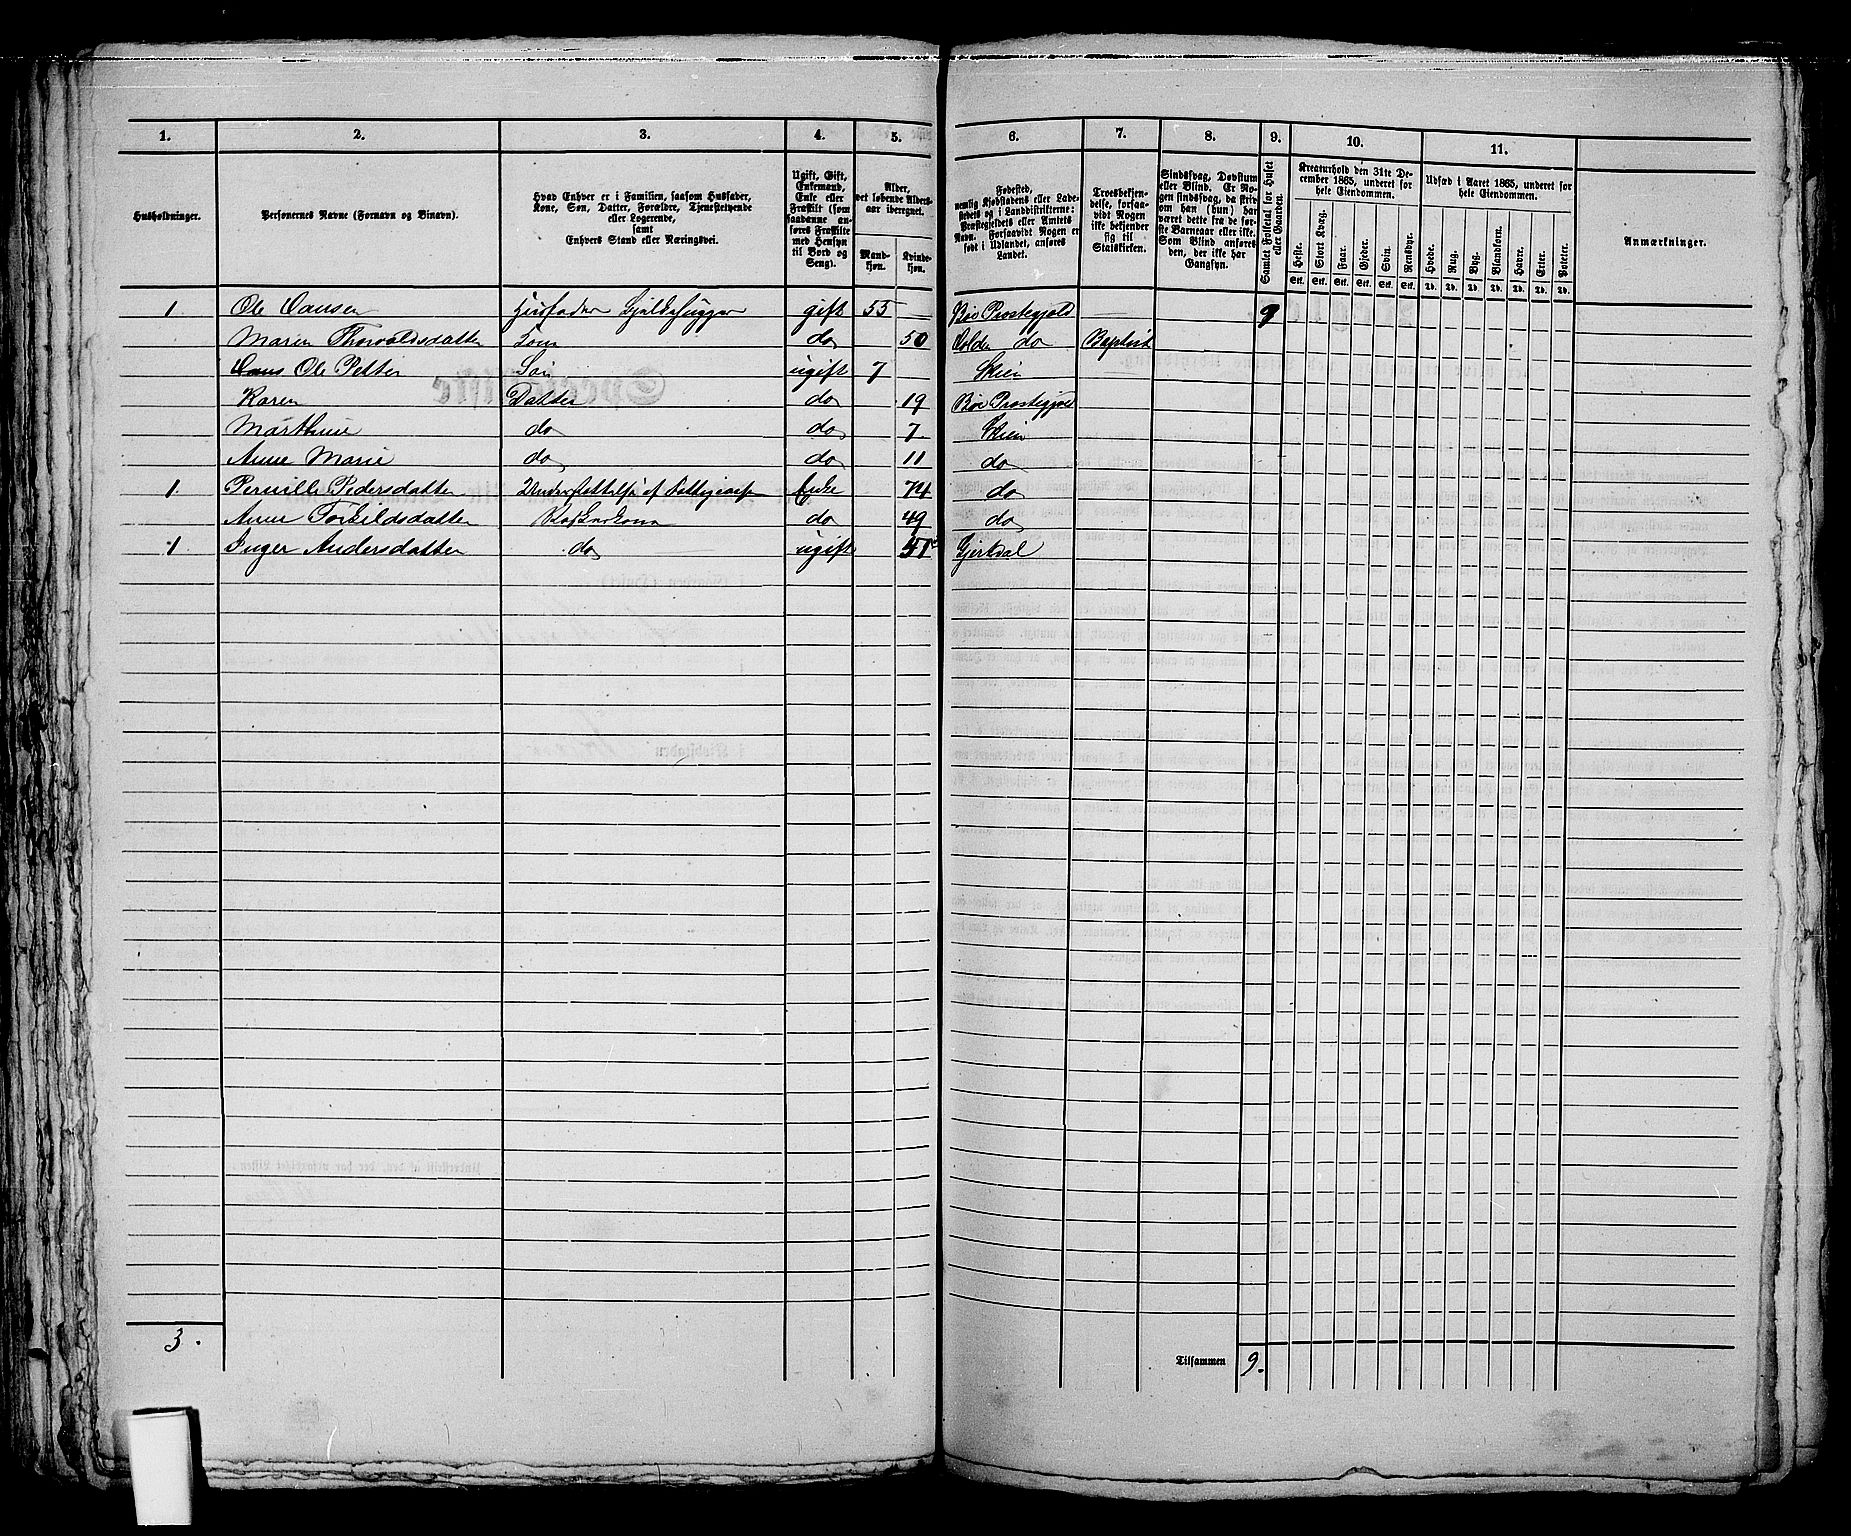 1. 2. 3. 4. 5. 6. 7. 8. 9. 10. 11.
Husholdninger.
Personernes Navne (Fornavn og Binavn).
Hvad Enhver er i Familien, saasom Husfader,
Kone, Søn, Datter, Forældre, Tjenestetyende
eller Logerende,
samt
Enhvers Stand eller Næringsvei.
Ugift, Gift,
Enkemand,
Enke eller
Fraskilt (som
saadanne an-
føres Fraskilte
med Hensyn
til Bord og
Seng).
Alder,
det løbende Alders-
aar iberegnet.
Mand-
kjøn.
Kvinde-
kjøn.
Fødested,
nemlig Kjøbstadens eller Lade-
stedets og i Landdistrikterne:
Præstegjeldets eller Amtets
Navn. Forsaavidt Nogen er
født i Udlandet, anføres
Landet.
Troesbekjen-
delse, forsaa-
vidt Nogen
ikke bekjender
sig til
Statskirken.
Sindssvag, Døvstum
eller Blind. Er No-
gen sindssvag, da skriv
om han (hun) har
været dette fra de før-
ste Barneaar eller ikke.
Som Blind anføres
den, der ikke har
Gangsyn.
Samlet Folketal for Huset
eller Gaarden.
Kreaturhold den 31te De-
cember 1865, underet for
hele Eiendommen.
Heste. Stort Kvæg. Faar. Gjeder. Svin. Rensdyr.
Stk. Stk. Stk. Stk. Stk. Stk.
Udsæd i Aaret 1865, underet for
hele Eiendommen.
Hvede. Rug. Byg. Blandkorn. Havre. Erter. Poteter.
Td. Td. Td. Td. Td. Td. Td.
Anmærkninger.
1 Ole Hansen Husfader gift 55 Bøe Prestegjeld 9
Maren Thorvaldsdatter do 50 Holden do Baptist
Hans Ole Petter Søn ugift 7 Skien
Karen Datter do 19 Bøe
Marthine do do 7 Skien
Anne Marie do do 11 do
1. Pernille Pedersdatter Understøttelse af Enke 74 do
Anne Torkildsdatter do 49 do
1 Inger Andersdatter do ugift 51 Gjerkdal
3.
Tilsammen 9.